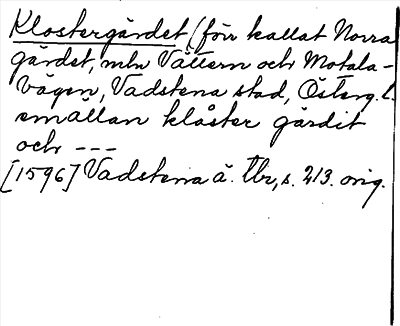 Klostergärdet (förr kallat Norra
gärdet, mln Vättern och Motala-
vägen, Vadstena stad, Österg. l.
emällan klåster gärdit
och ---
[1596] Vadstena ä. tbr, s. 213. orig.